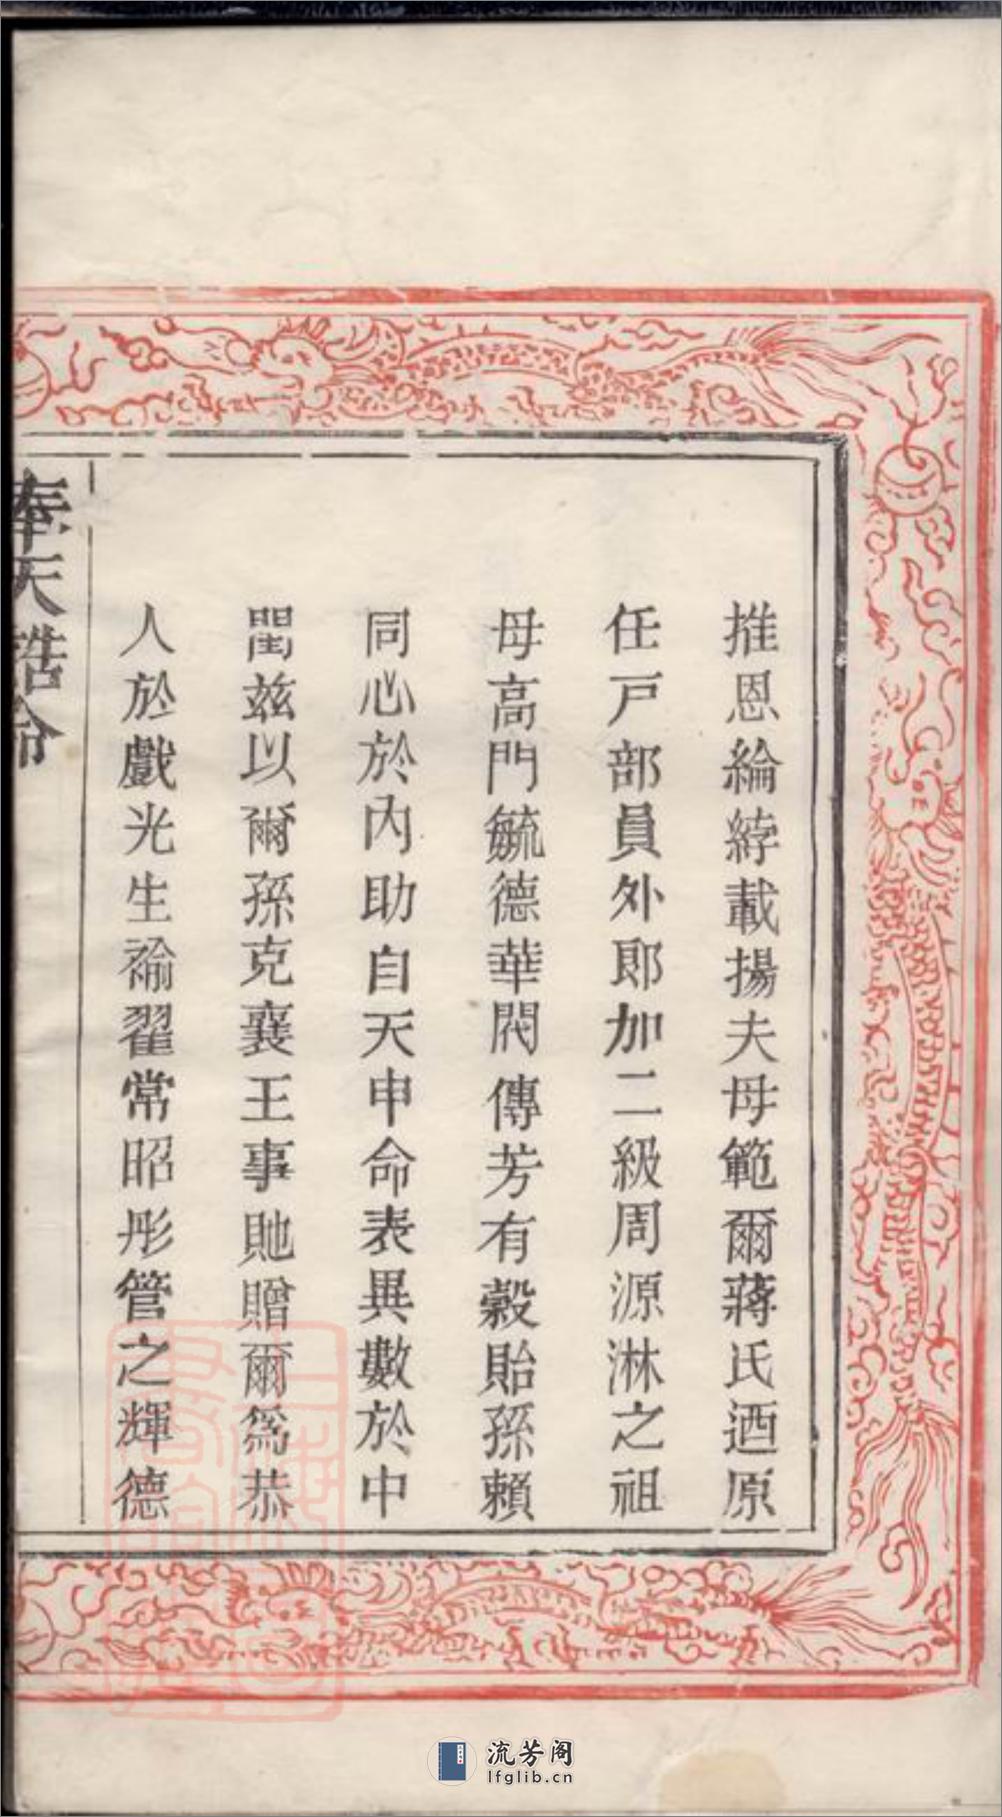 推恩綸綍載揚夫母範爾蔣氏迺原
任戸部員外郎加二級周源淋之祖
母高門毓德華閥傳芳有穀貽孫賴
同心於內助自天申命表異數於中
閨兹以爾孫克襄王事貤贈爾爲恭
人於戲光生褕翟常昭彤管之輝德
奉天誥命
流芳阁
lfglib.cn